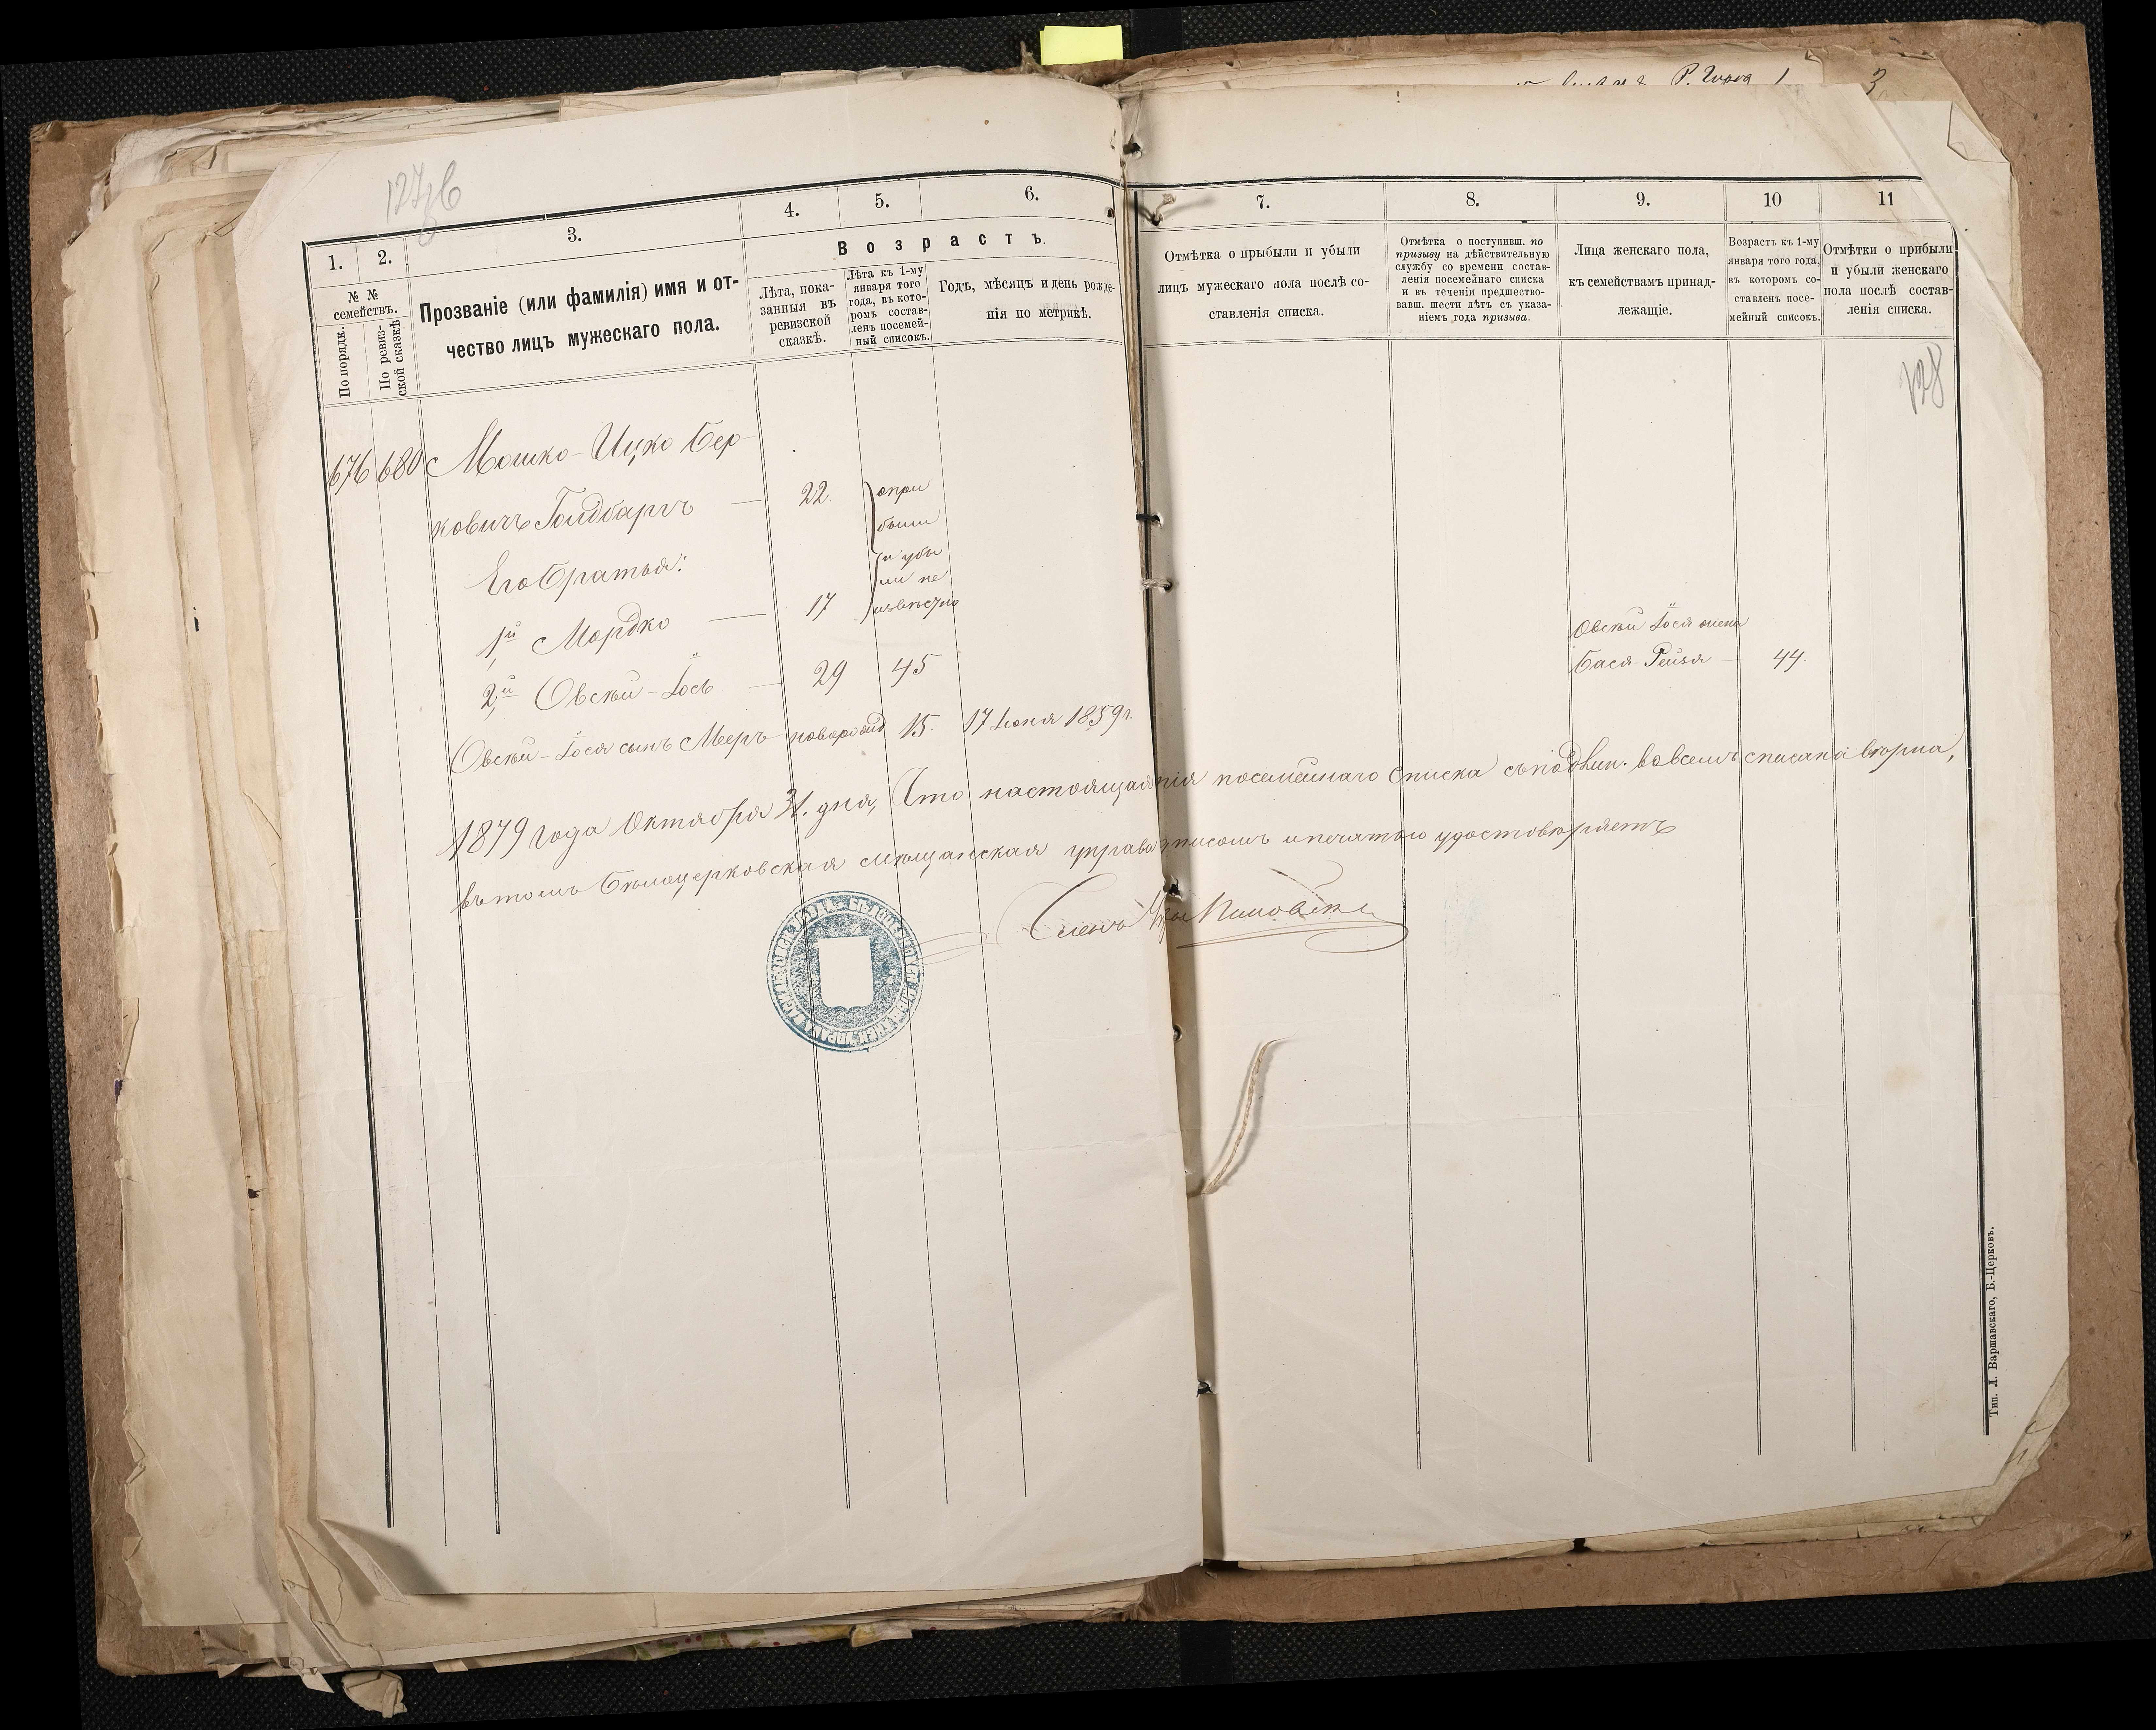 1.
2.
3.
4.
5.
6.
7.
8.
9.
10
11
№ №
семействъ.
По порядк.
По ревиз-
ской сказкѣ
Прозваніе (или фамилія) имя и от-
чество лицъ мужескаго пола.
Возрастъ.
Лѣта, пока-
занныя въ
ревизской
сказкѣ.
Лѣта къ 1-му
января того
года, въ кото-
ромъ состав-
ленъ посемей-
ный списокъ.
Годъ, мѣсяцъ и день рожде-
нія по метрикѣ.
Отмѣтка о прыбыли и убыли
лицъ мужескаго пола послѣ со-
ставленія списка.
Отмѣтка о поступивш. по
призыву на дѣйствительную
службу со времени состав-
ленія посемейнаго списка
и въ теченіи предшество-
вавш. шести лѣтъ съ указа-
ніемъ года призыва.
Лица женскаго пола,
къ семействамъ принад-
лежащіе.
Возрастъ къ 1-му
января того года,
въ которомъ со-
ставленъ посе-
мейный списокъ.
Отмѣтки о прибыли
и убыли женскаго
пола послѣ состав-
ленія списка.
128
676 680 Мошко-Ицко Бер-
ковичъ Голдбаргъ — 22.
о при
были
и убы
ли не
извѣстно
Его братья:
1й Мордко — 17
2й Овсѣй-Іось — 29 45
Овсѣй Іося жена
Бася-Рейзя — 44.
Овсѣй-Іося сынъ Меръ новорожд 15. 17 Іюня 1859 г.
1879 года Октября 31. дня, Что настоящая пія посемейнаго списка съ подлин. во всемъ списана вѣрна,
въ томъ Бѣлоцерковская мѣщанская управа писомъ и печатью удостовѣряетъ
Членъ
Тип. Л. Варшавскаго, Б.-Церковъ.